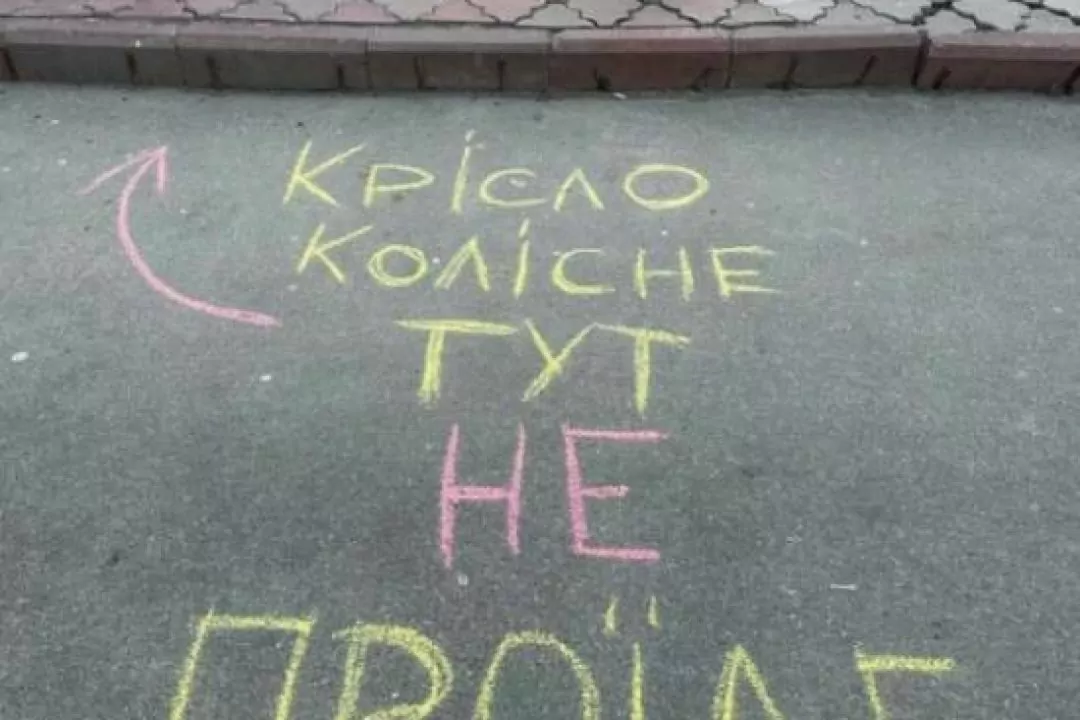 КРІСЛО
КОЛІСНЕ
ТУТ
НЕ